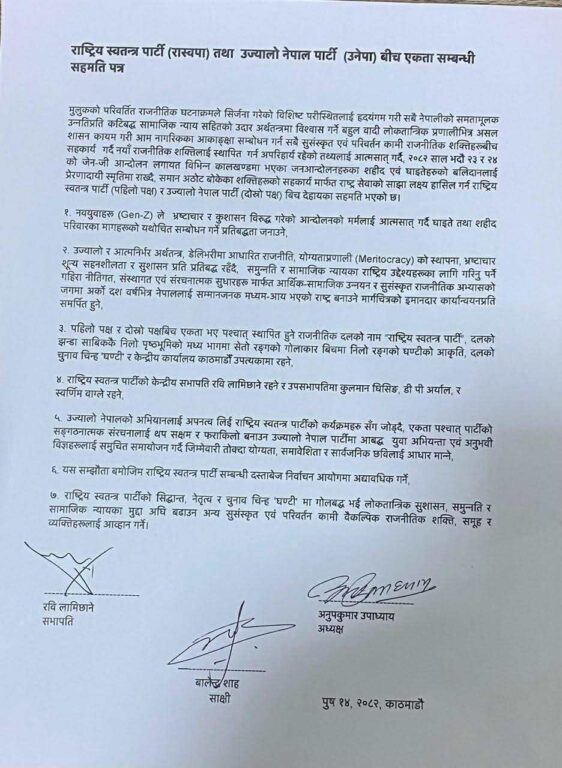 राष्ट्रिय स्वतन्त्र पार्टी (रास्वपा) तथा उज्यालो नेपाल पार्टी (उनेपा) बीच एकता सम्बन्धी
सहमति पत्र
मुलुकको परिवर्तित राजनीतिक घटनाक्रमले सिर्जना गरेको विशिष्ट परीस्थितलाई हृदयंगम गरी सबै नेपालीको समतामूलक
उन्नतिप्रति कटिबद्ध सामाजिक न्याय सहितको उदार अर्थतन्त्रमा विश्वास गर्ने बहुल वादी लोकतान्त्रिक प्रणालीभित्र असल
शासन कायम गरी आम नागरिकका आकाङ्क्षा सम्बोधन गर्न सबै सुसंस्कृत एवं परिवर्तन कामी राजनीतिक शक्तिहरूबीच
सहकार्य गर्दै नयाँ राजनीतिक शक्तिलाई स्थापित गर्न अपरिहार्य रहेको तथ्यलाई आत्मसात् गर्दै, २०८२ साल भदौ २३ र २४
को जेन-जी आन्दोलन लगायत विभिन्न कालखण्डमा भएका जनआन्दोलनहरुका शहीद एवं घाइतेहरुको बलिदानलाई
प्रेरणादायी स्मृतिमा राख्दै, समान अठोट बोकेका शक्तिहरुको सहकार्य मार्फत राष्ट्र सेवाको साझा लक्ष्य हासिल गर्न राष्ट्रिय
स्वतन्त्र पार्टी (पहिलो पक्ष) र उज्यालो नेपाल पार्टी (दोस्रो पक्ष) बिच देहायका सहमती भएको छ।
१. नवयुवाहरू (Gen-Z) ले भ्रष्टाचार र कुशासन विरुद्ध गरेको आन्दोलनको मर्मलाई आत्मसात् गर्दै घाइते तथा शहीद
परिवारका मागहरुको यथोचित सम्बोधन गर्ने प्रतिबद्धता जनाउने,
२. उज्यालो र आत्मनिर्भर अर्थतन्त्र, डेलिभरीमा आधारित राजनीति, योग्यताप्रणाली (Meritocracy) को स्थापना, भ्रष्टाचार
शून्य सहनशीलता र सुशासन प्रति प्रतिबद्ध रहँदै, समुन्नति र सामाजिक न्यायका राष्ट्रिय उद्देश्यहरूका लागि गरिनु पर्ने
गहिरा नीतिगत, संस्थागत एवं संरचनात्मक सुधारहरू मार्फत आर्थिक-सामाजिक उन्नयन र सुसंस्कृत राजनीतिक अभ्यासको
जगमा अर्को दश वर्षभित्र नेपाललाई सम्मानजनक मध्यम-आय भएको राष्ट्र बनाउने मार्गचित्रको इमानदार कार्यान्वयनप्रति
समर्पित हुने,
३. पहिलो पक्ष र दोस्रो पक्षबिच एकता भए पश्चात् स्थापित हुने राजनीतिक दलको नाम "राष्ट्रिय स्वतन्त्र पार्टी", दलको
झन्डा साबिककै निलो पृष्ठभूमिको मध्य भागमा सेतो रङ्गको गोलाकार बिचमा निलो रङ्गको घण्टीको आकृति, दलको
चुनाव चिन्ह 'घण्टी' र केन्द्रीय कार्यालय काठमाडौँ उपत्यकामा रहने,
४. राष्ट्रिय स्वतन्त्र पार्टीको केन्द्रीय सभापति रवि लामिछाने रहने र उपसभापतिमा कुलमान घिसिङ, डी पी अर्याल, र
स्वर्णिम वाग्ले रहने,
५. उज्यालो नेपालको अभियानलाई अपनत्व लिई राष्ट्रिय स्वतन्त्र पार्टीको कर्यक्रमहरु सँग जोड्दै, एकता पश्चात् पार्टीको
सङ्गठनात्मक संरचनालाई थप सक्षम र फराकिलो बनाउन उज्यालो नेपाल पार्टीमा आबद्ध युवा अभियन्ता एवं अनुभवी
विज्ञहरूलाई समुचित समायोजन गर्दै जिम्मेवारी तोक्दा योग्यता, समावेशिता र सार्वजनिक छविलाई आधार मान्ने,
६. यस सम्झौता बमोजिम राष्ट्रिय स्वतन्त्र पार्टी सम्बन्धी दस्ताबेज निर्वाचन आयोगमा अद्यावधिक गर्ने,
७. राष्ट्रिय स्वतन्त्र पार्टीको सिद्धान्त, नेतृत्व र चुनाव चिन्ह 'घण्टी' मा गोलबद्ध भई लोकतान्त्रिक सुशासन, समुन्नति र
सामाजिक न्यायका मुद्दा अघि बढाउन अन्य सुसंस्कृत एवं परिवर्तन कामी वैकल्पिक राजनीतिक शक्ति, समूह र
व्यक्तिहरूलाई आव्हान गर्ने।
रवि लामिछाने
सभापति
अनुपकुमार उपाध्याय
अध्यक्ष
बालेन्द्र शाह
साक्षी
पुष १४, २०८२, काठमाडौ